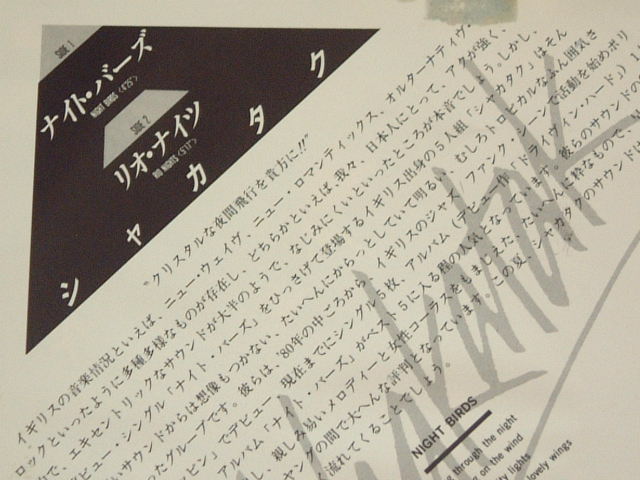 SIDE 1
ナイト・バーズ
NIGHT BIRDS (4'25")
SIDE 2
リオ・ナイツ
RIO NIGHTS (5'17")
シャカタク
"クリスタルな夜間飛行を貴方に!!"
イギリスの音楽情況といえば、ニュー・ウェイヴ、ニュー・ロマンティックス、オルターナティヴ・
ロックといったように多種多様なものが存在し、どちらかといえば、我々、日本人にとって、アクが強く、
で、エキセントリックなサウンドが大半のようで、なじみにくいといったところが本音でしょう。しかし、
ビュー・シングル「ナイト・バーズ」をひっさげて登場するイギリス出身の5人組「シャカタク」はそん
いサウンドからは想像もつかない、たいへんにからっとしていて明るい、むしろトロピカルなふん囲気さ
ったグループです。彼らは、'80年の中ごろから、イギリスのジャズ/ファンク・シーンで活動を始めポリ
ピン」でデビュー、現在までにシングル5枚、アルバム(デビュー作「ドライヴィン・ハード」)1
アルバム「ナイト・バーズ」がベスト5に入る程の人気となっています。彼らのサウンドの
し、親しみ易いメロディーと女性コーラスをもまじえた、たいへんに粋なもので、
ヤングの間で大へんな評判となっています。この夏、シャカタクのサウンドは
流れてくることでしょう。
Shakatak
NIGHT BIRDS
through the night
on the wind
lights
lovely wings